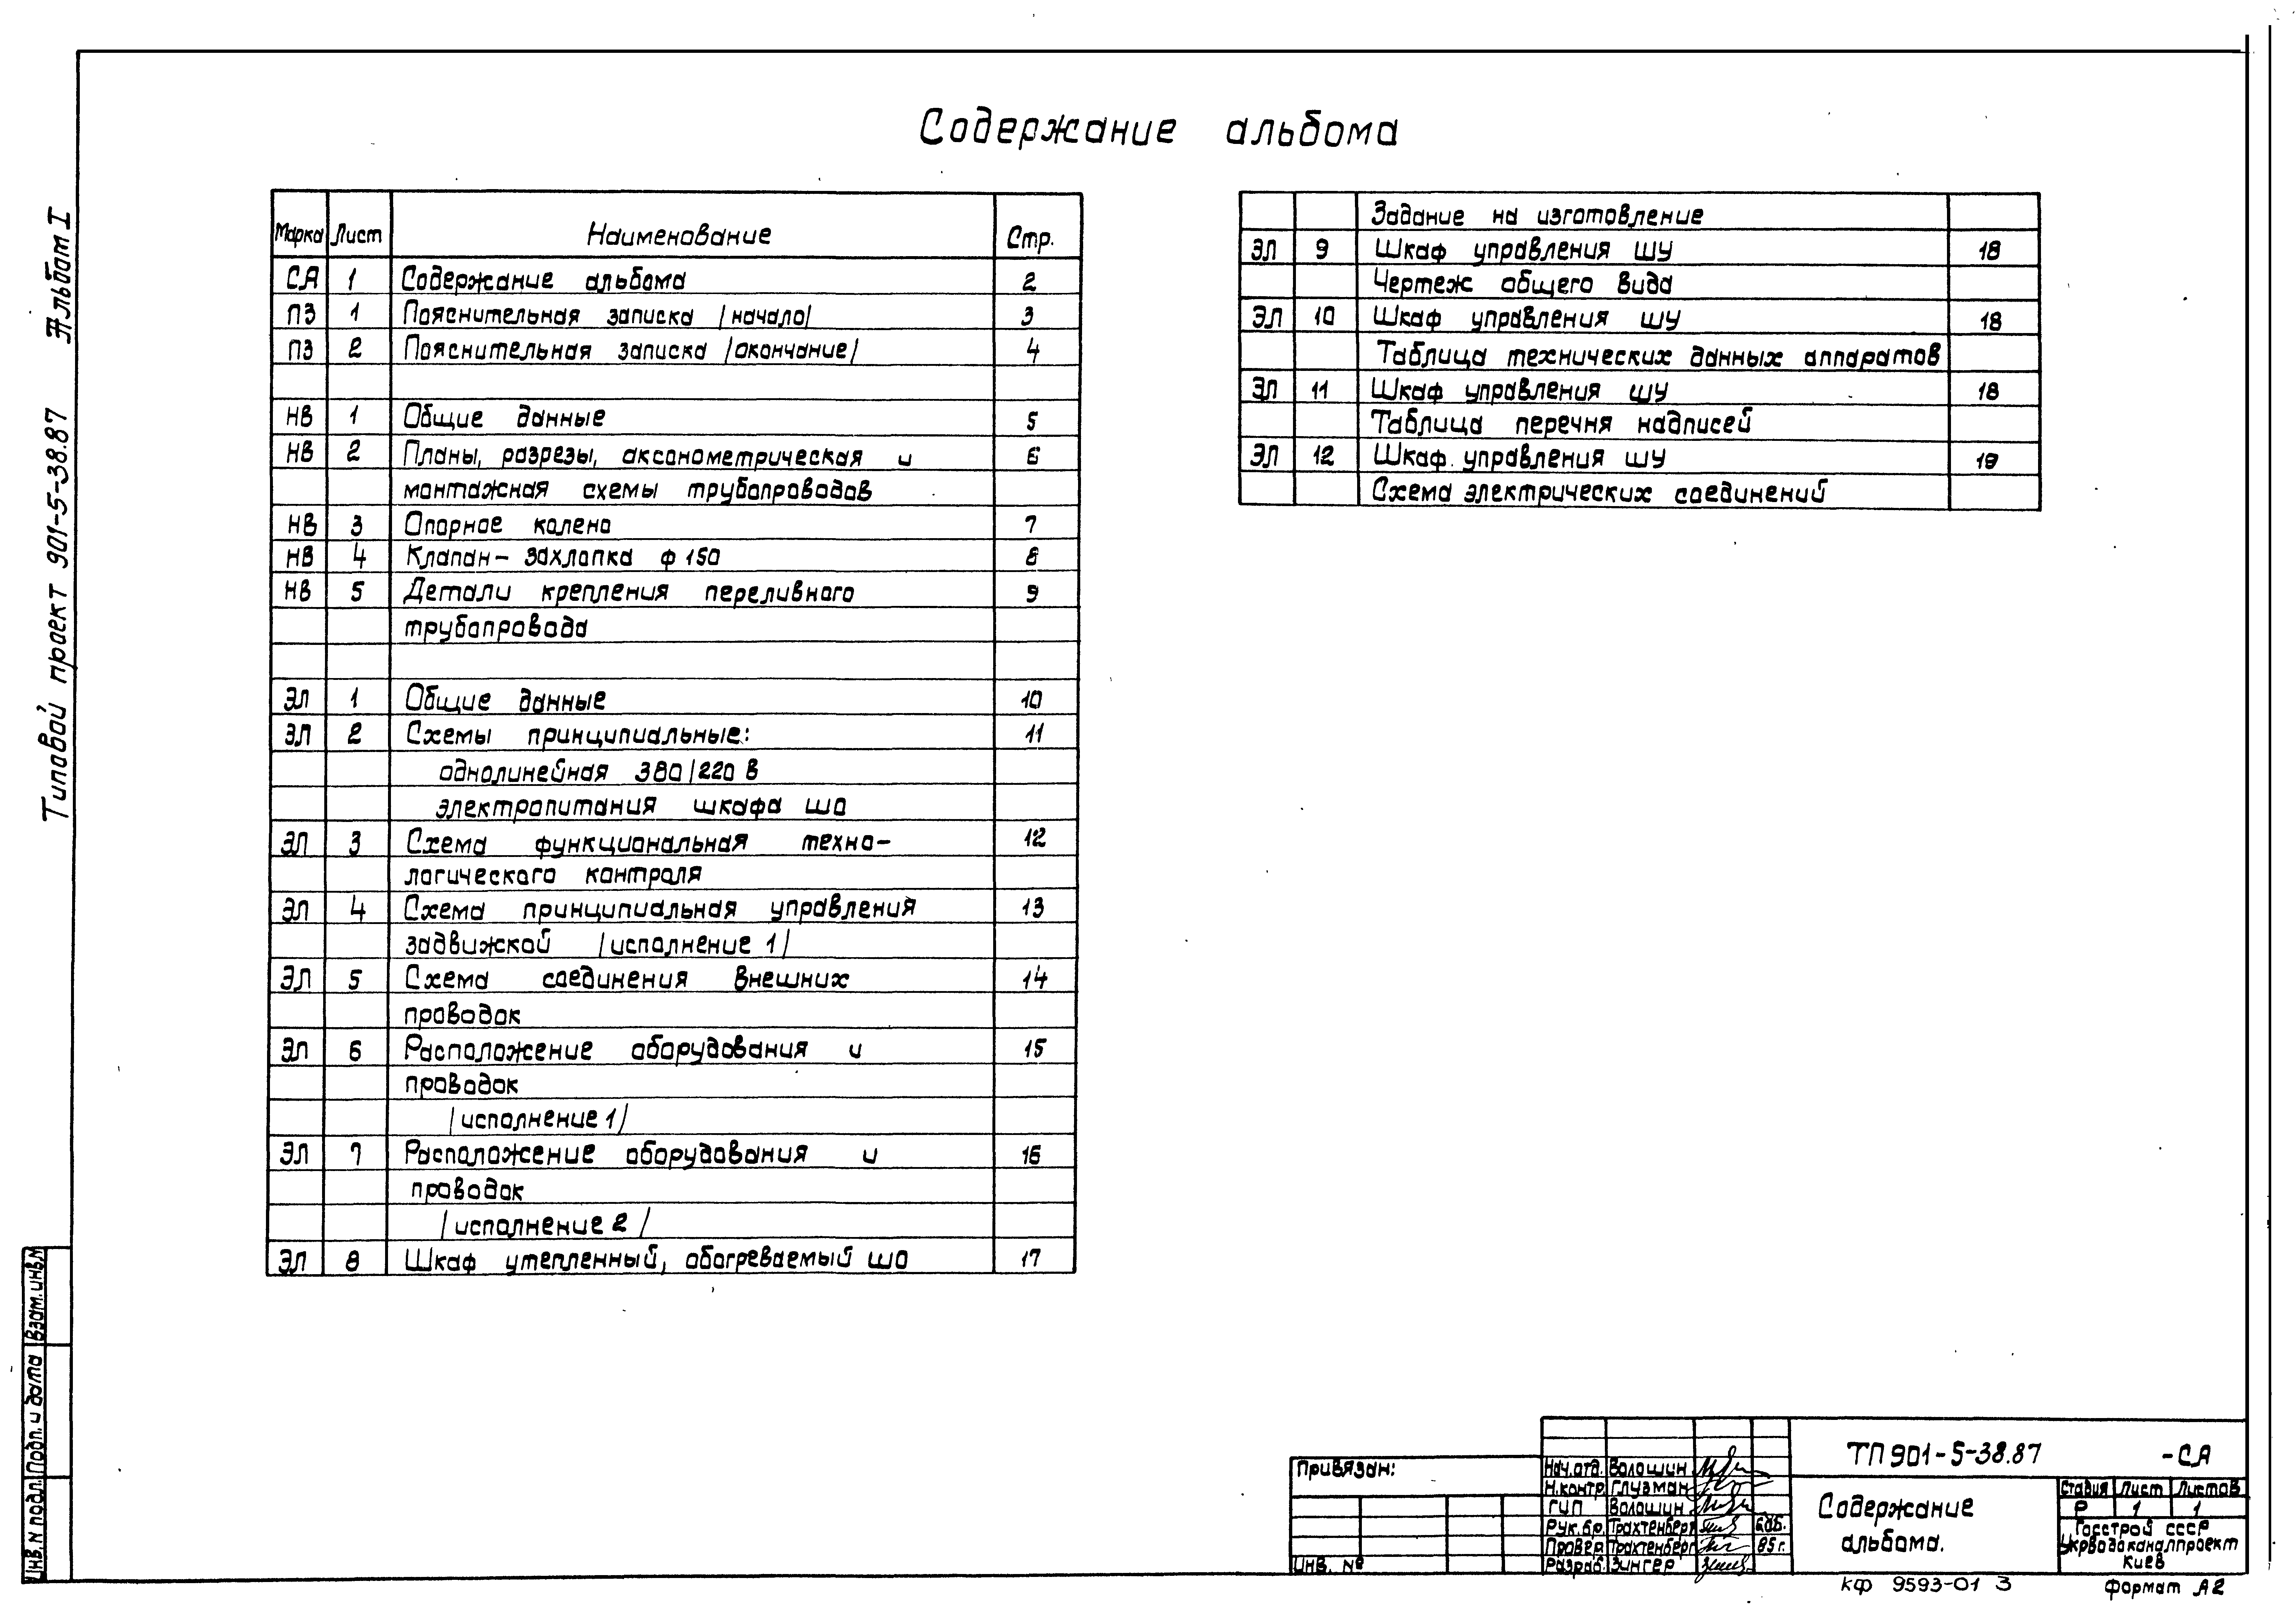 Содержание альбома
Типовой проект 901-5-38.87 Альбом I
Марка Лист Наименование Стр.
СА 1 Содержание альбома 2
ПЗ 1 Пояснительная записка /начало/ 3
ПЗ 2 Пояснительная записка /окончание/ 4
НВ 1 Общие данные 5
НВ 2 Планы, разрезы, аксонометрическая и 6
монтажная схемы трубопроводов
НВ 3 Опорное колено 7
НВ 4 Клапан-захлопка ф 150 8
НВ 5 Детали крепления переливного 9
трубопровода
ЭЛ 1 Общие данные 10
ЭЛ 2 Схемы принципиальные: 11
однолинейная 380/220 В
электропитания шкафа ШО
ЭЛ 3 Схема функциональная техно- 12
логического контроля
ЭЛ 4 Схема принципиальная управления 13
задвижкой /исполнение 1/
ЭЛ 5 Схема соединения внешних 14
проводок
ЭЛ 6 Расположение оборудования и 15
проводок
/исполнение 1/
ЭЛ 7 Расположение оборудования и 16
проводок
/исполнение 2/
ЭЛ 8 Шкаф утепленный, обогреваемый ШО 17
Задание на изготовление
ЭЛ 9 Шкаф управления ШУ 18
Чертеж общего вида
ЭЛ 10 Шкаф управления ШУ 18
Таблица технических данных аппаратов
ЭЛ 11 Шкаф управления ШУ 18
Таблица перечня надписей
ЭЛ 12 Шкаф управления ШУ 19
Схема электрических соединений
Инв. N подл. Подп. и дата Взам. инв. N
Привязан:
Инв. №
Нач. отд. Волошин
Н. контр. Глузман
ГИП Волошин
Рук. бр. Трахтенберг
Провер. Трахтенберг 85 г.
Разраб. Зингер
ТП 901-5-38.87 -СА
Содержание
альбома.
Стадия Лист Листов
Р 1 1
Госстрой СССР
Укрводоканалпроект
Киев
КФ 9593-01 3
Формат А2